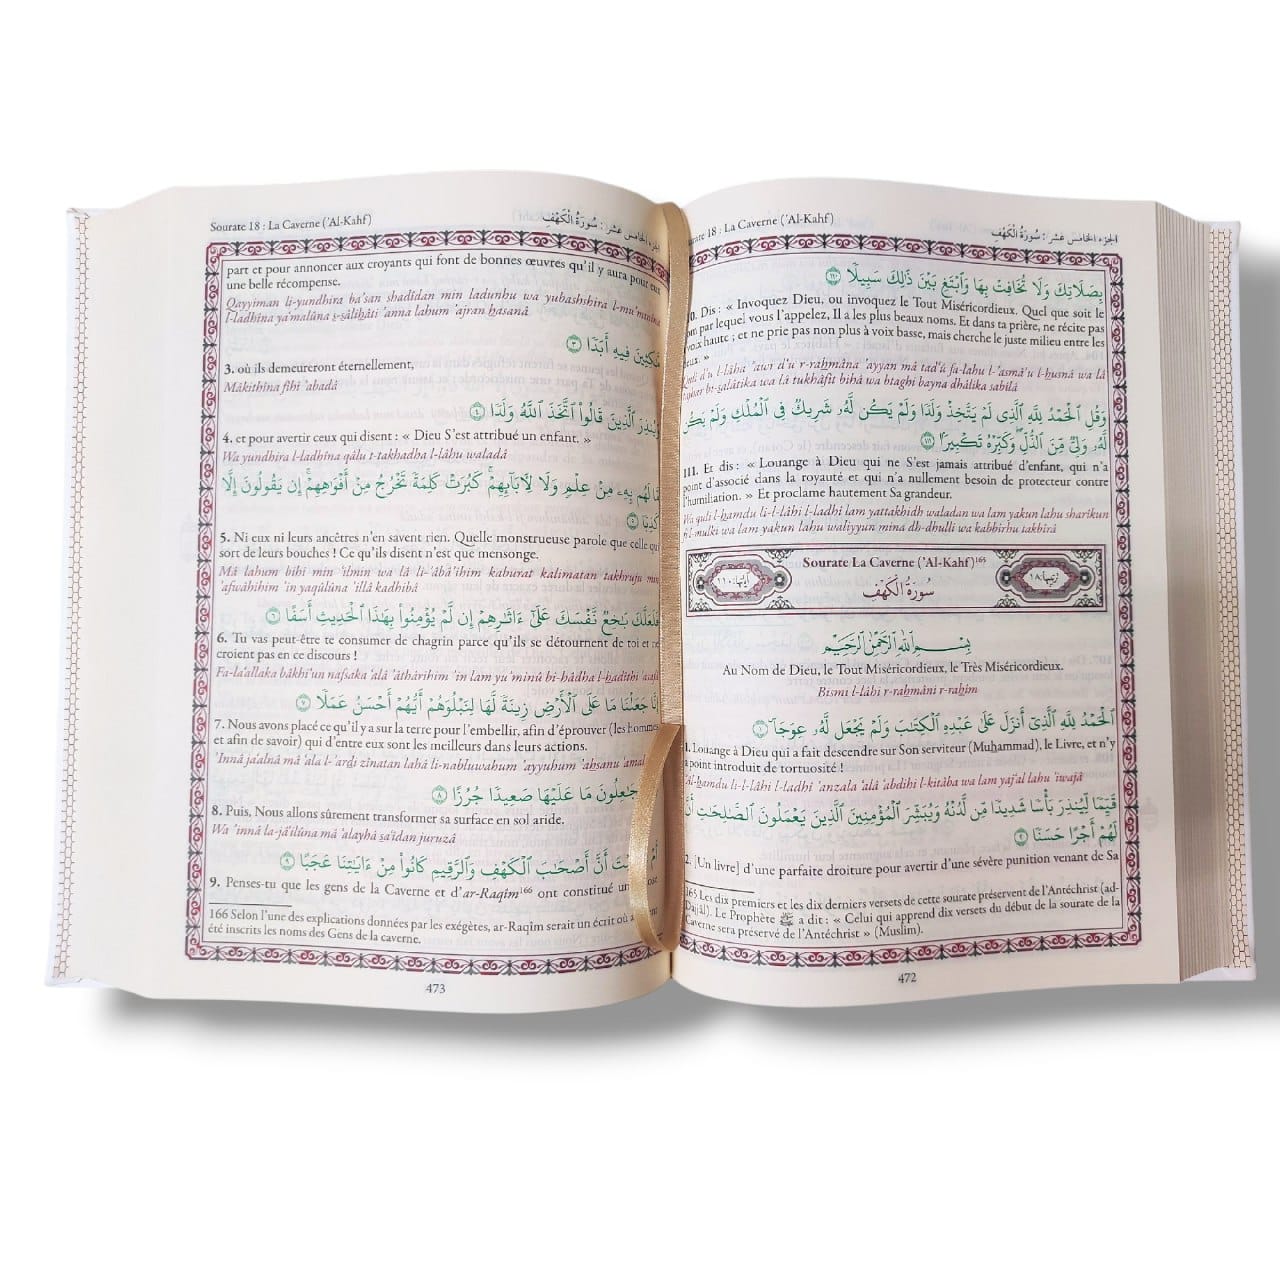 18 : La Caverne ('Al-Kahf) الجزء الخامس عشر : سُورَةُ الكَهْفِ
بِصَلَاتِكَ وَلَا تُخَافِتْ بِهَا وَٱبْتَغِ بَيْنَ ذَٰلِكَ سَبِيلًا ١١٠
Dis : « Invoquez Dieu, ou invoquez le Tout Miséricordieux. Quel que soit le
par lequel vous l'appelez, Il a les plus beaux noms. Et dans ta prière, ne récite pas
voix haute ; et ne prie pas non plus à voix basse, mais cherche le juste milieu entre les
»
d'u l-lâha 'awr d'u r-rahmâna 'ayyan mâ tad'û fa-lahu l-'asmâ'u l-husnâ wa lâ
bi-salâtika wa lâ tukhâfit bihâ wa btaghi bayna dhâlika sabîlâ
وَقُلِ ٱلْحَمْدُ لِلَّهِ ٱلَّذِى لَمْ يَتَّخِذْ وَلَدًا وَلَمْ يَكُن لَّهُۥ شَرِيكٌ فِى ٱلْمُلْكِ وَلَمْ يَكُن
لَّهُۥ وَلِىٌّ مِّنَ ٱلذُّلِّ ۖ وَكَبِّرْهُ تَكْبِيرًا ١١١
111. Et dis : « Louange à Dieu qui ne S'est jamais attribué d'enfant, qui n'a
point d'associé dans la royauté et qui n'a nullement besoin de protecteur contre
l'humiliation. » Et proclame hautement Sa grandeur.
Wa quli l-hamdu li-l-lâhi l-ladhî lam yattakhidh waladan wa lam yakun lahu sharîkun
fî l-mulki wa lam yakun lahu waliyyun mina dh-dhulli wa kabbirhu takbîrâ
Sourate La Caverne ('Al-Kahf)165
ترتيبها ١٨
سُورَةُ الكَهْفِ
آياتها ١١٠
بِسْمِ ٱللَّهِ ٱلرَّحْمَٰنِ ٱلرَّحِيمِ
Au Nom de Dieu, le Tout Miséricordieux, le Très Miséricordieux.
Bismi l-lâhi r-rahmâni r-rahîm
ٱلْحَمْدُ لِلَّهِ ٱلَّذِىٓ أَنزَلَ عَلَىٰ عَبْدِهِ ٱلْكِتَٰبَ وَلَمْ يَجْعَل لَّهُۥ عِوَجَا ١
1. Louange à Dieu qui a fait descendre sur Son serviteur (Muhammad), le Livre, et n'y
a point introduit de tortuosité !
'al-hamdu li-l-lâhi l-ladhî 'anzala 'alâ 'abdihi l-kitâba wa lam yaj'al lahu 'iwajâ
قَيِّمًا لِّيُنذِرَ بَأْسًا شَدِيدًا مِّن لَّدُنْهُ وَيُبَشِّرَ ٱلْمُؤْمِنِينَ ٱلَّذِينَ يَعْمَلُونَ ٱلصَّٰلِحَٰتِ أَنَّ
لَهُمْ أَجْرًا حَسَنًا ٢
2. [Un livre] d'une parfaite droiture pour avertir d'une sévère punition venant de Sa
165 Les dix premiers et les dix derniers versets de cette sourate préservent de l'Antéchrist (ad-
Dajjâl). Le Prophète ﷺ a dit : « Celui qui apprend dix versets du début de la sourate de la
Caverne sera préservé de l'Antéchrist » (Muslim).
472
Sourate 18 : La Caverne ('Al-Kahf) الجزء الخامس عشر : سُورَةُ الكَهْفِ
part et pour annoncer aux croyants qui font de bonnes œuvres qu'il y aura pour eux
une belle récompense.
Qayyiman li-yundhira ba'san shadîdan min ladunhu wa yubashshira l-mu'minîna
l-ladhîna ya'malûna s-sâlihâti 'anna lahum 'ajran hasanâ
مَّٰكِثِينَ فِيهِ أَبَدًا ٣
3. où ils demeureront éternellement,
Mâkithîna fîhi 'abadâ
وَيُنذِرَ ٱلَّذِينَ قَالُوا۟ ٱتَّخَذَ ٱللَّهُ وَلَدًا ٤
4. et pour avertir ceux qui disent : « Dieu S'est attribué un enfant. »
Wa yundhira l-ladhîna qâlu t-takhadha l-lâhu waladâ
مَّا لَهُم بِهِۦ مِنْ عِلْمٍ وَلَا لِءَابَآئِهِمْ ۚ كَبُرَتْ كَلِمَةً تَخْرُجُ مِنْ أَفْوَٰهِهِمْ ۚ إِن يَقُولُونَ إِلَّا
كَذِبًا ٥
5. Ni eux ni leurs ancêtres n'en savent rien. Quelle monstrueuse parole que celle qui
sort de leurs bouches ! Ce qu'ils disent n'est que mensonge.
Mâ lahum bihi min 'ilmin wa lâ li-'âbâ'ihim kaburat kalimatan takhruju min
'afwâhihim 'in yaqûlûna 'illâ kadhibâ
فَلَعَلَّكَ بَٰخِعٌ نَّفْسَكَ عَلَىٰٓ ءَاثَٰرِهِمْ إِن لَّمْ يُؤْمِنُوا۟ بِهَٰذَا ٱلْحَدِيثِ أَسَفًا ٦
6. Tu vas peut-être te consumer de chagrin parce qu'ils se détournent de toi et ne
croient pas en ce discours !
Fa-la'allaka bâkhi'un nafsaka 'alâ 'âthârihim 'in lam yu'minû bi-hâdha l-hadîthi 'asafâ
إِنَّا جَعَلْنَا مَا عَلَى ٱلْأَرْضِ زِينَةً لَّهَا لِنَبْلُوَهُمْ أَيُّهُمْ أَحْسَنُ عَمَلًا ٧
7. Nous avons placé ce qu'il y a sur la terre pour l'embellir, afin d'éprouver (les hommes
et afin de savoir) qui d'entre eux sont les meilleurs dans leurs actions.
'Innâ ja'alnâ mâ 'ala l-'ardi zînatan lahâ li-nabluwahum 'ayyuhum 'ahsanu 'amal
لَجَٰعِلُونَ مَا عَلَيْهَا صَعِيدًا جُرُزًا ٨
8. Puis, Nous allons sûrement transformer sa surface en sol aride.
Wa 'innâ la-jâ'ilûna mâ 'alayhâ sa'îdan juruzâ
أَمْ حَسِبْتَ أَنَّ أَصْحَٰبَ ٱلْكَهْفِ وَٱلرَّقِيمِ كَانُوا۟ مِنْ ءَايَٰتِنَا عَجَبًا ٩
9. Penses-tu que les gens de la Caverne et d'ar-Raqîm166 ont constitué une chose
166 Selon l'une des explications données par les exégètes, ar-Raqîm serait un écrit où
été inscrits les noms des Gens de la caverne.
473